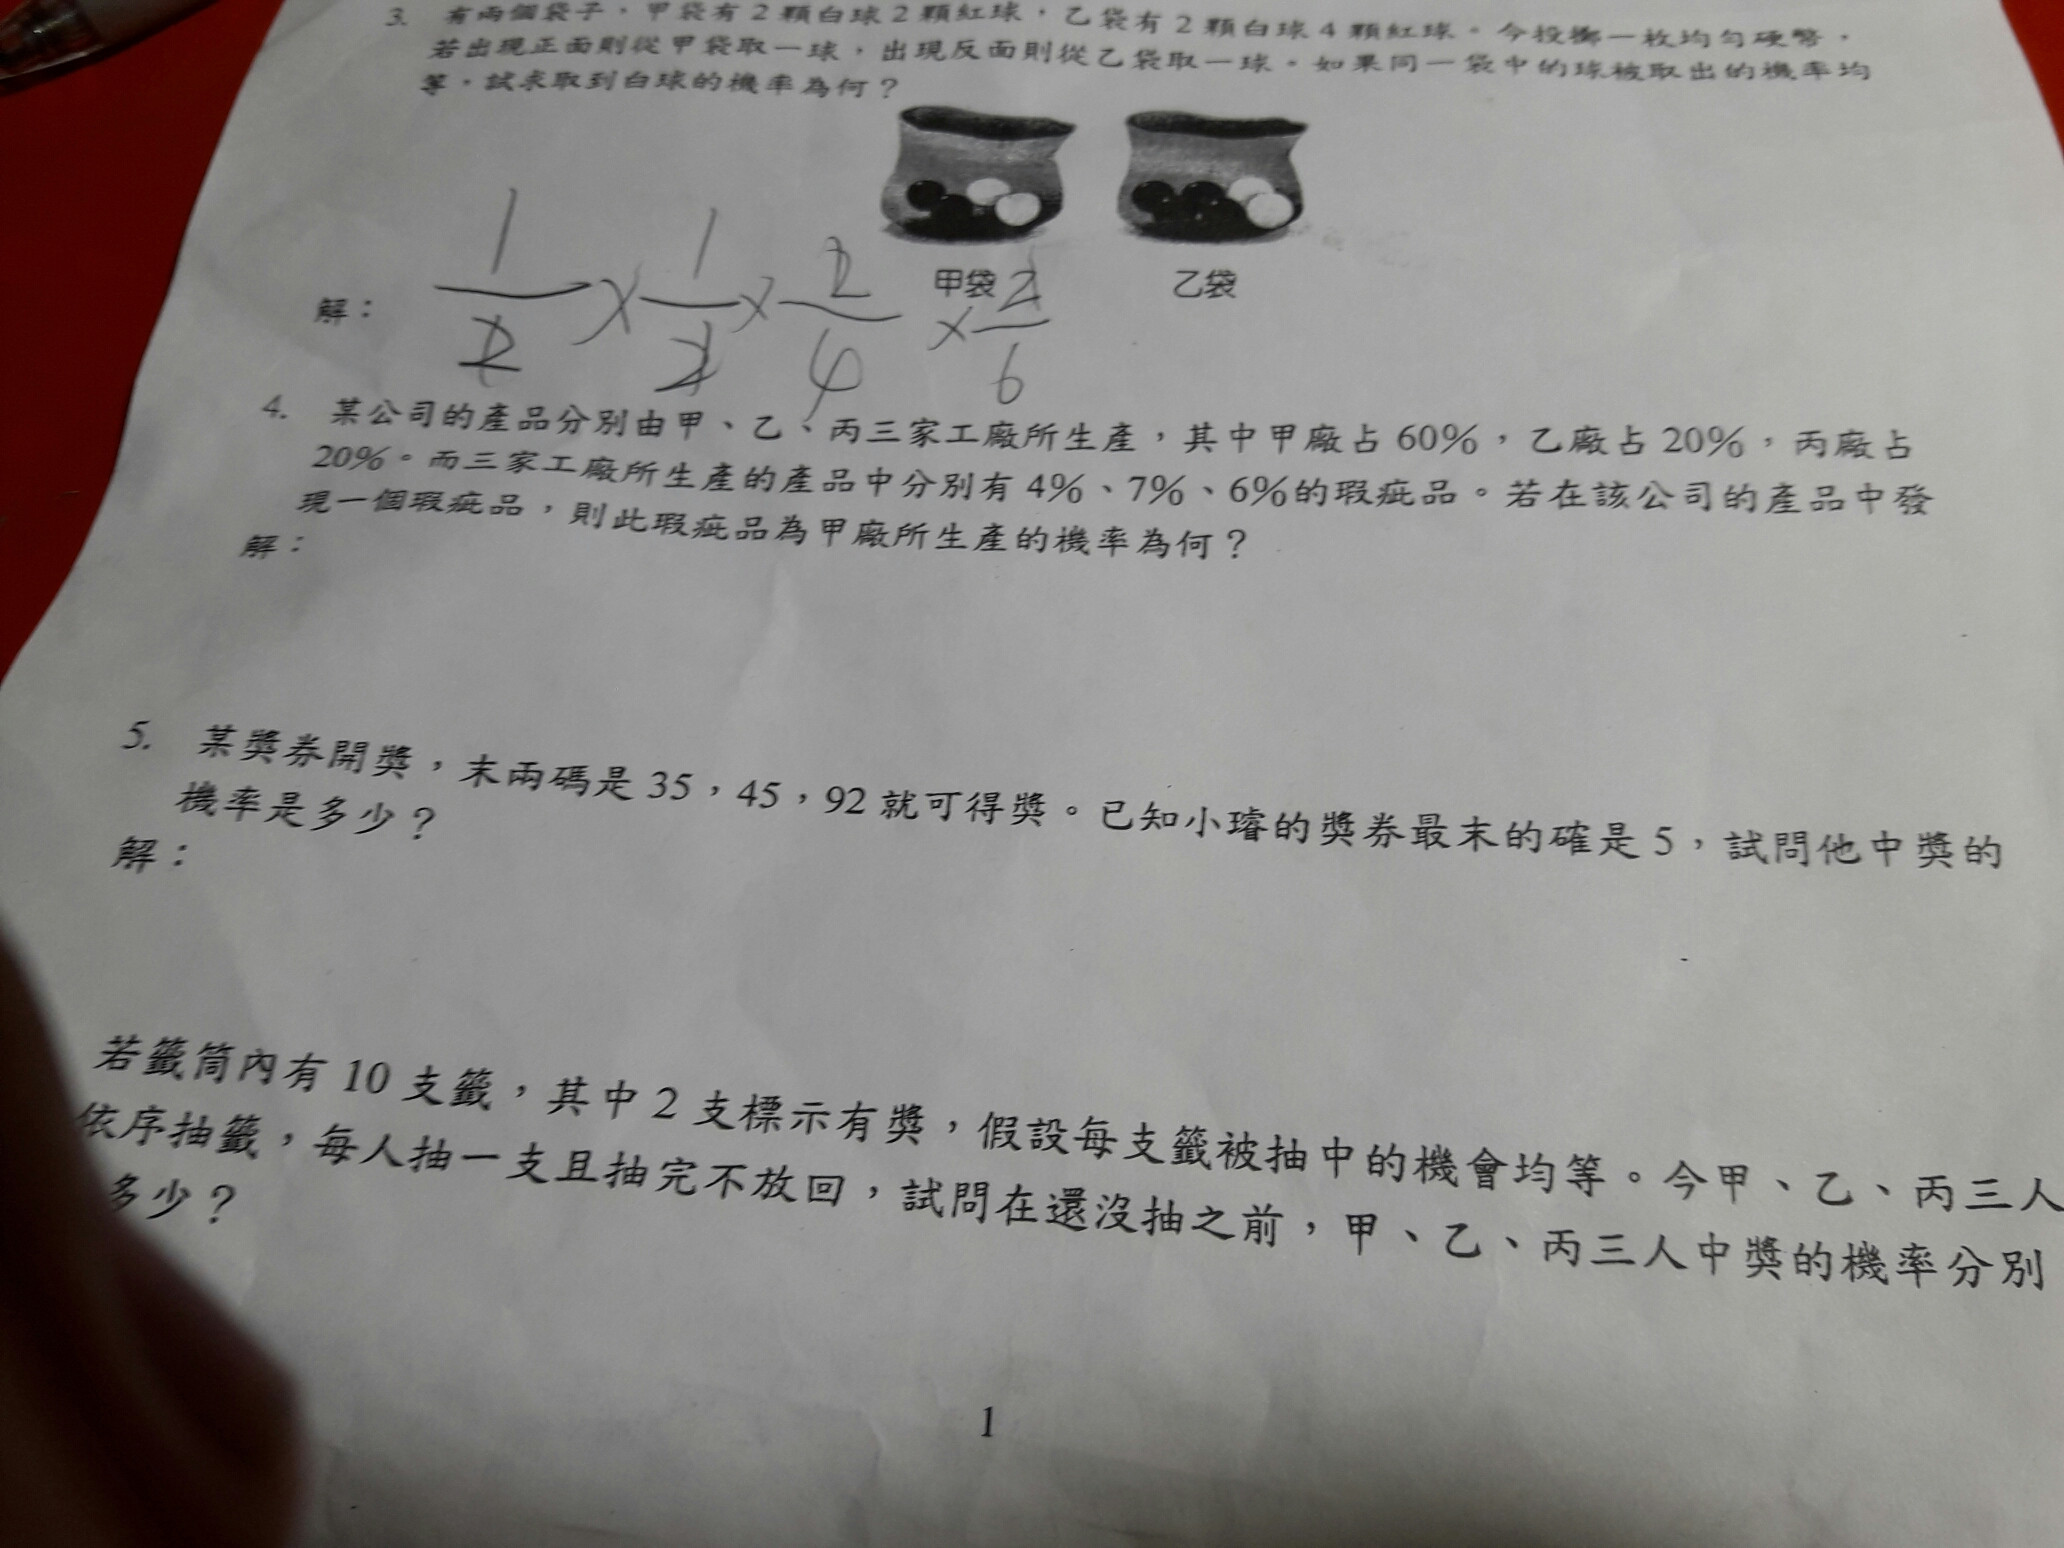 3. 有兩個袋子，甲袋有2顆白球2顆紅球，乙袋有2顆白球4顆紅球。今投擲一枚均勻硬幣，
若出現正面則從甲袋取一球，出現反面則從乙袋取一球。如果同一袋中的球被取出的機率均
等，試求取到白球的機率為何？
甲袋 乙袋
解： 1/2 × 1/2 × 2/4 × 2/6
4. 某公司的產品分別由甲、乙、丙三家工廠所生產，其中甲廠占60%，乙廠占20%，丙廠占
20%。而三家工廠所生產的產品中分別有4%、7%、6%的瑕疵品。若在該公司的產品中發
現一個瑕疵品，則此瑕疵品為甲廠所生產的機率為何？
解：
5. 某獎券開獎，末兩碼是35，45，92就可得獎。已知小璿的獎券最末的確是5，試問他中獎的
機率是多少？
解：
若籤筒內有10支籤，其中2支標示有獎，假設每支籤被抽中的機會均等。今甲、乙、丙三人
依序抽籤，每人抽一支且抽完不放回，試問在還沒抽之前，甲、乙、丙三人中獎的機率分別
多少？
1